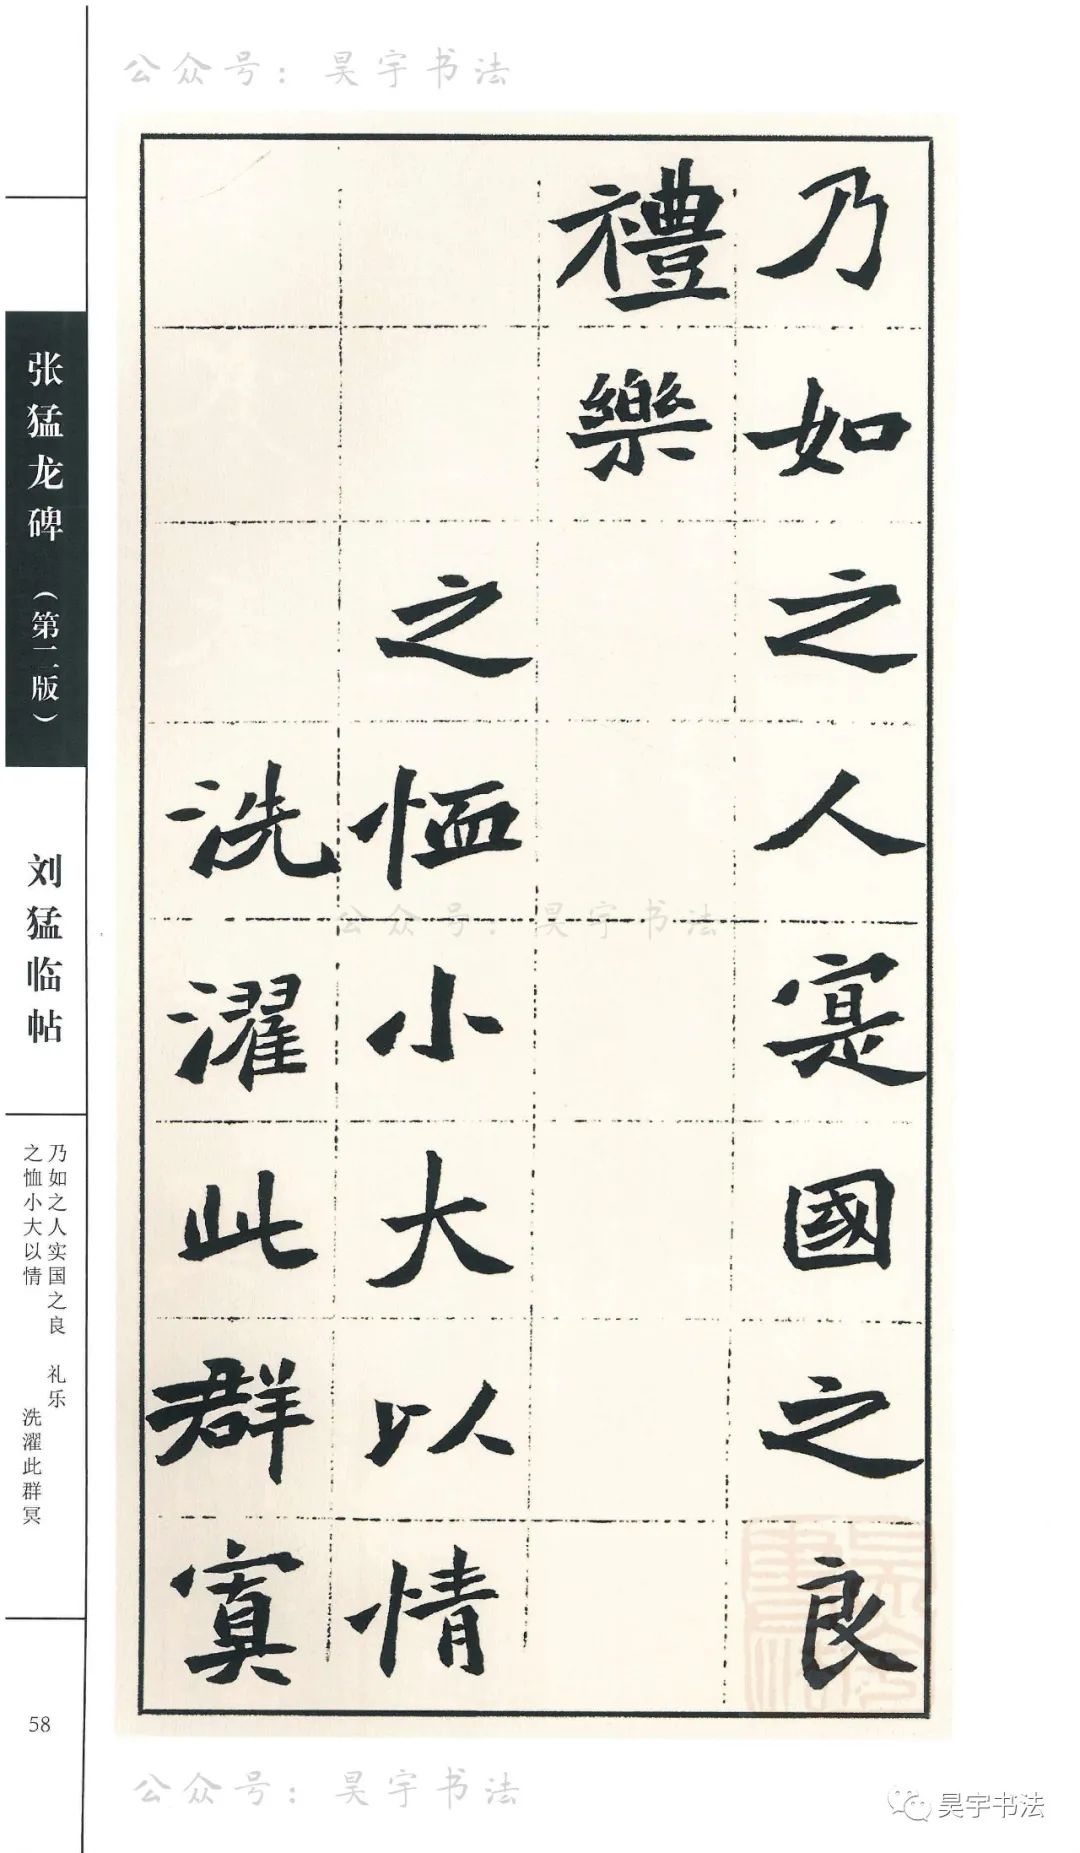 公众号：昊宇书法
乃如之人寔國之良
禮樂
之恤小大以情
洗濯此群冥
公众号：昊宇书法
张猛龙碑（第二版）
刘猛临帖
乃如之人实国之良 礼乐
之恤小大以情 洗濯此群冥
58
公众号：昊宇书法
昊宇书法